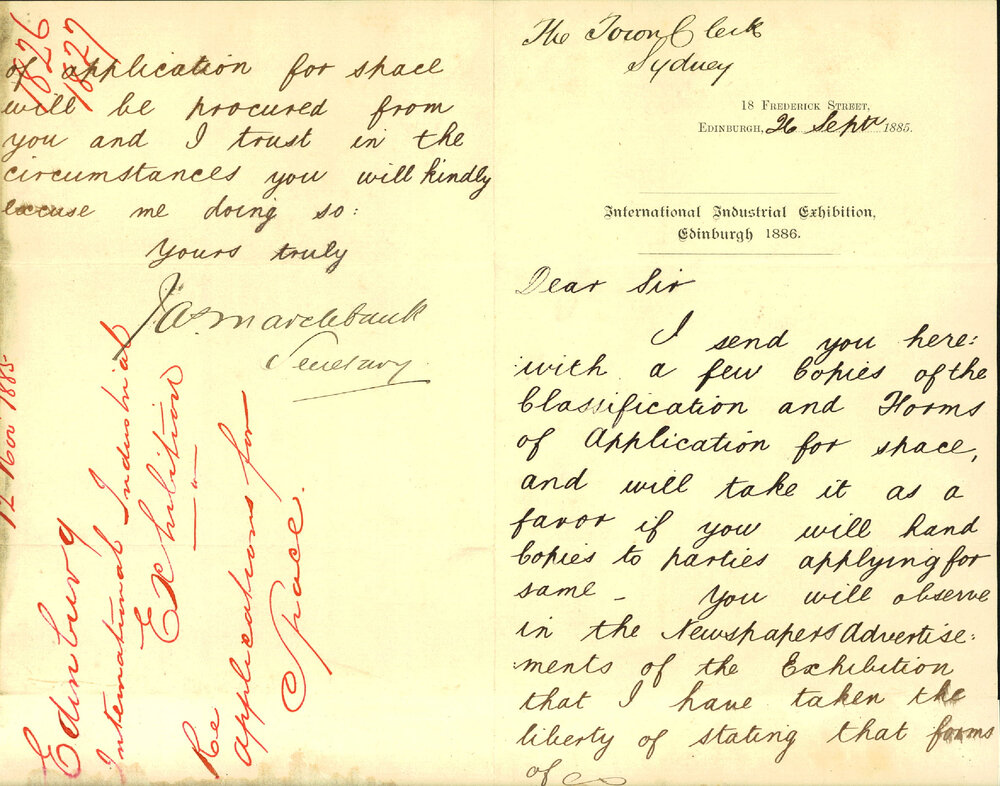 The Town Clerk
Sydney
18 Frederick Street,
Edinburgh, 26 Septr 1885.
International Industrial Exhibition,
Edinburgh 1886.
Dear Sir
I send you here:
with a few Copies of the
Classification and Forms
of Application for space,
and will take it as a
favor if you will hand
Copies to parties applying for
same - You will observe
in the Newspapers Advertise:
ments of the Exhibition
that I have taken the
liberty of stating that forms
of
of application for space
will be procured from
you and I trust in the
circumstances you will kindly
excuse me doing so:
Yours truly
Jas Marchbank
Secretary
1826
1827
12 Nov 1885
Edinburg
International Industrial
Exhibition
Re
applications for
Space.